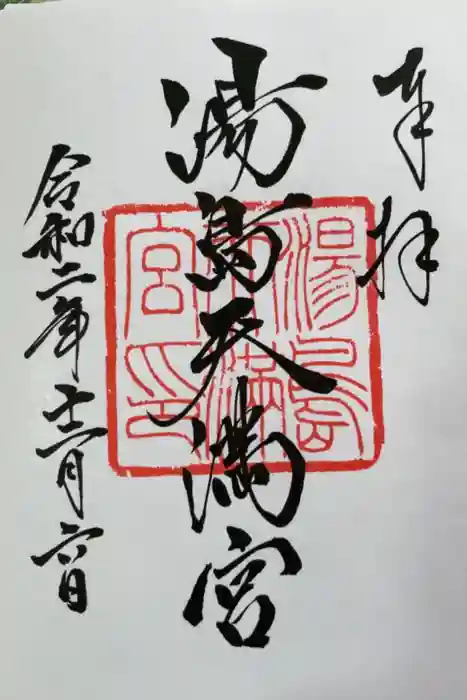 奉拝
湯島天満宮
令和二年十二月六日
湯島
天満
宮印